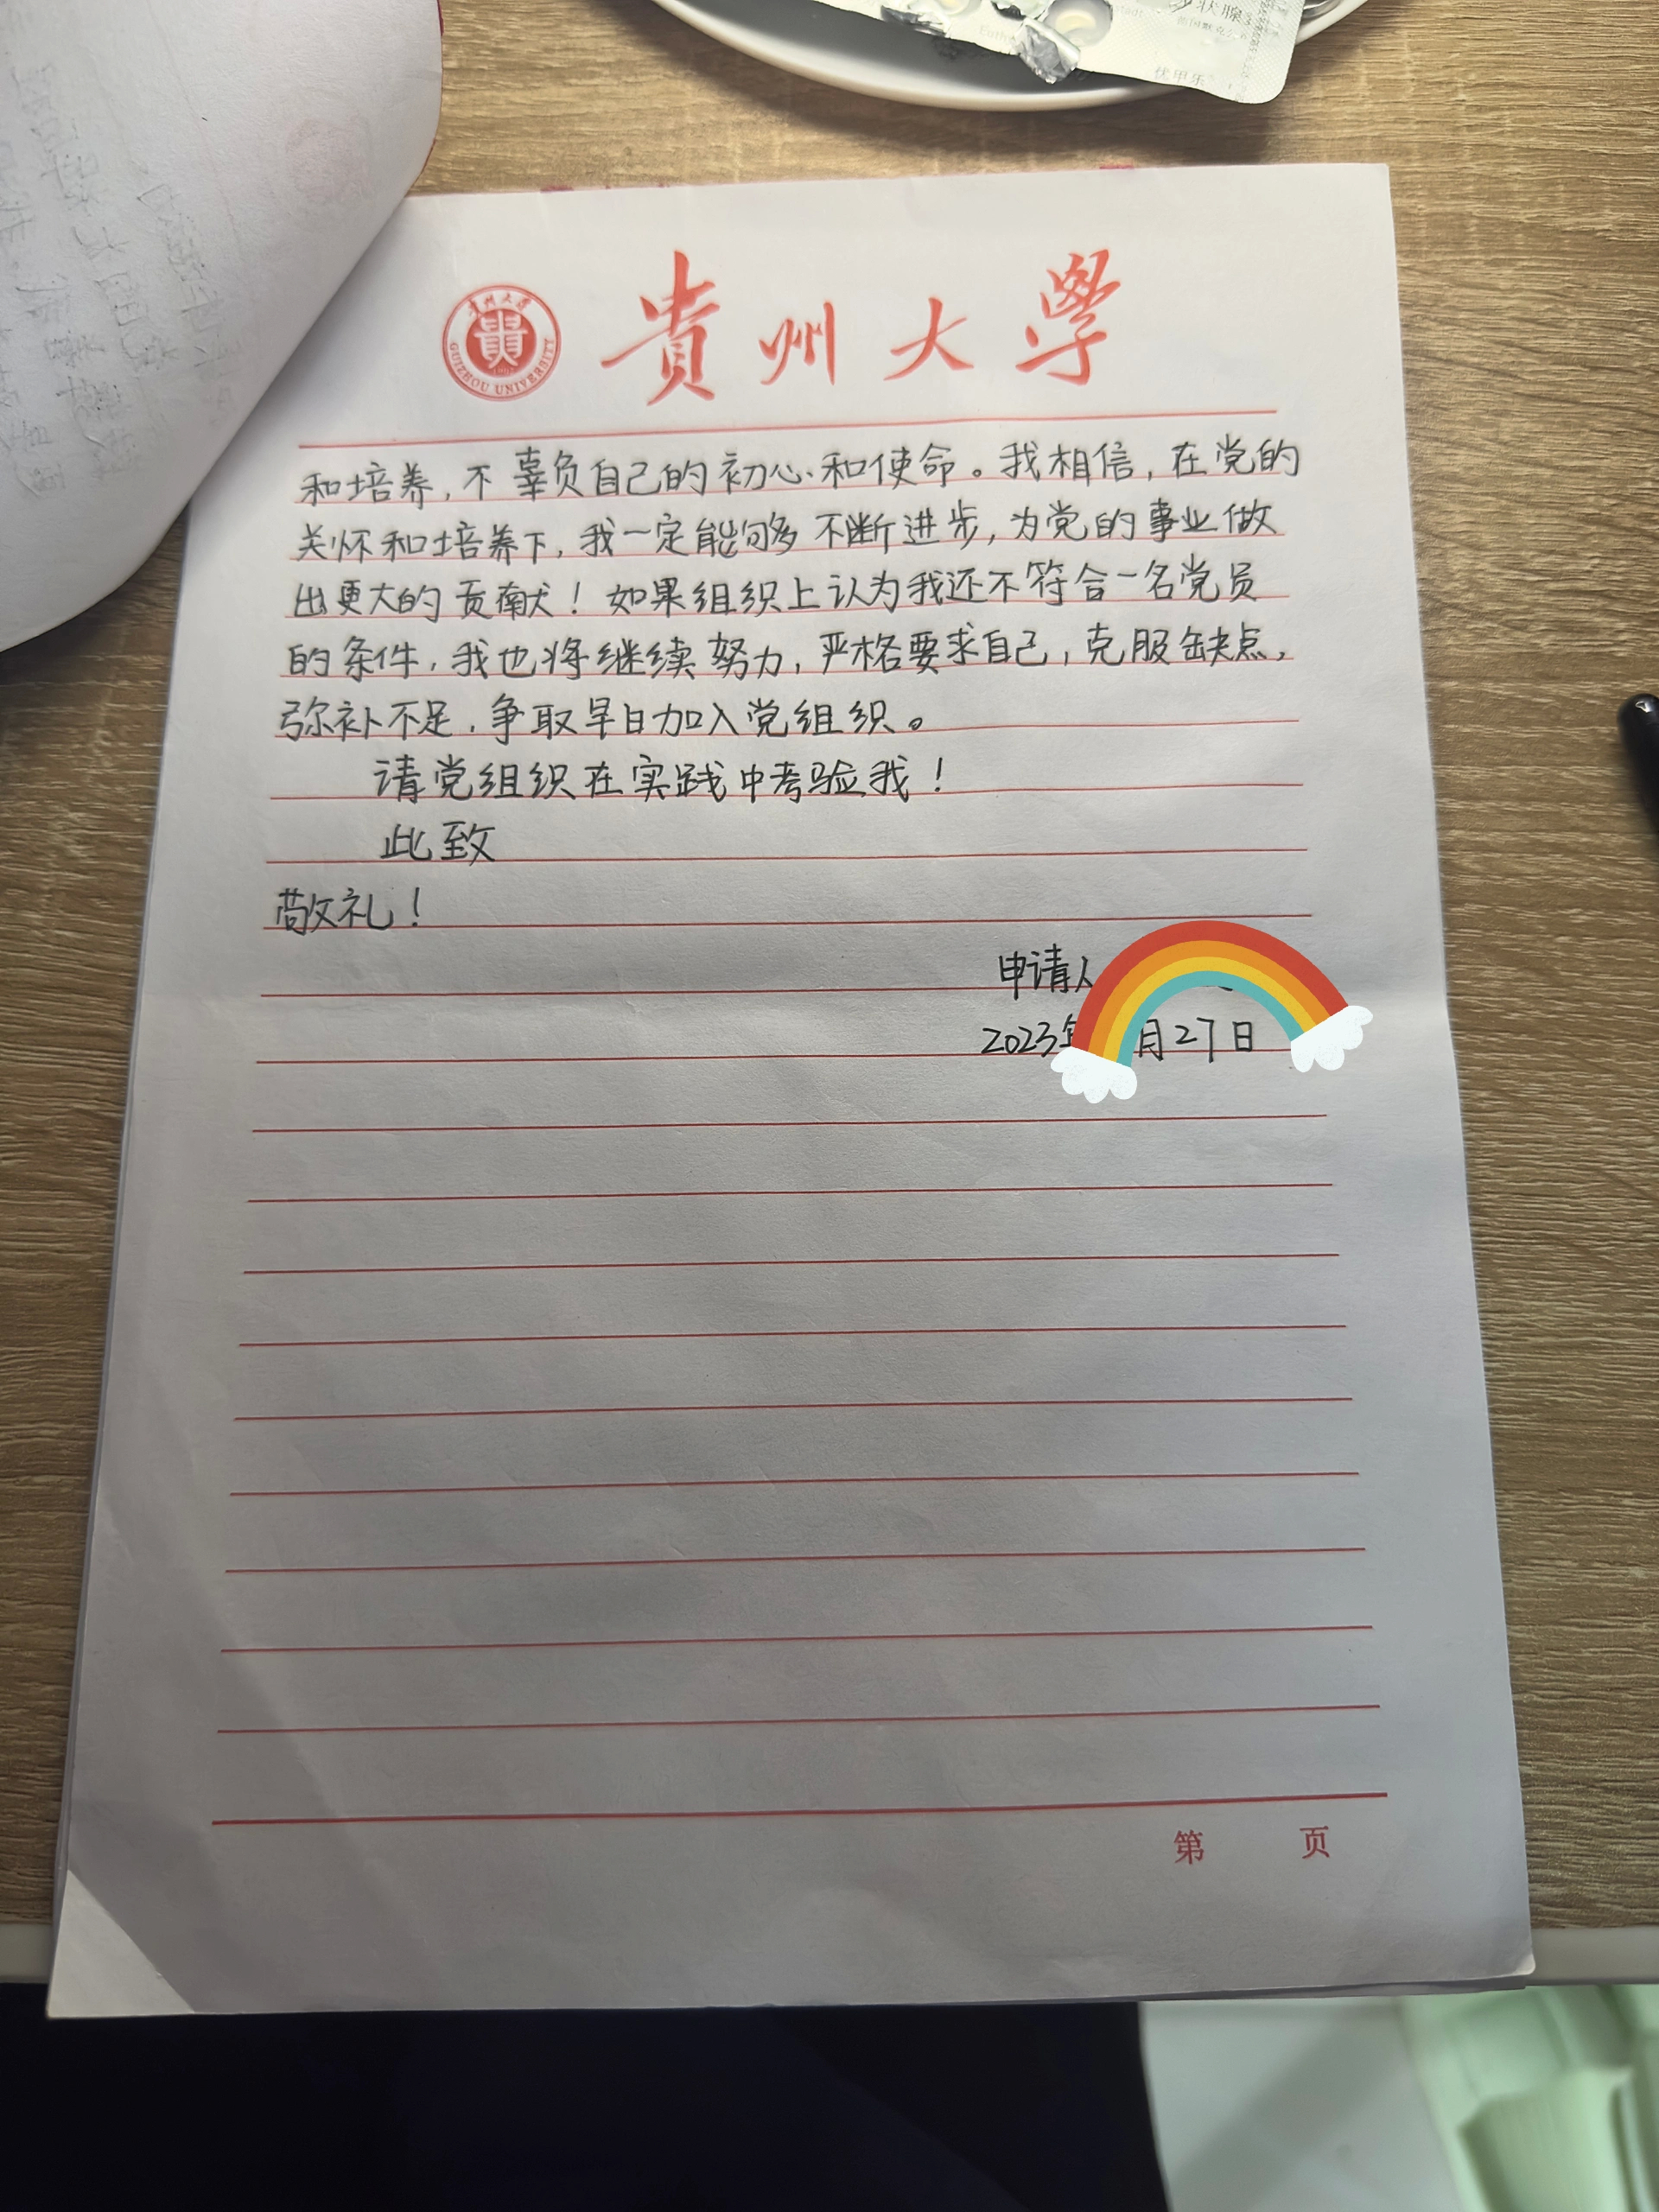 状腺
优甲乐
貴州大學
貴州大學
貴
GUIZHOU UNIVERSITY
和培养，不辜负自己的初心和使命。我相信，在党的
关怀和培养下，我一定能够不断进步，为党的事业做
出更大的贡献！如果组织上认为我还不符合一名党员
的条件，我也将继续努力，严格要求自己，克服缺点，
弥补不足，争取早日加入党组织。
请党组织在实践中考验我！
此致
敬礼！
申请人
2023年 月27日
第 页